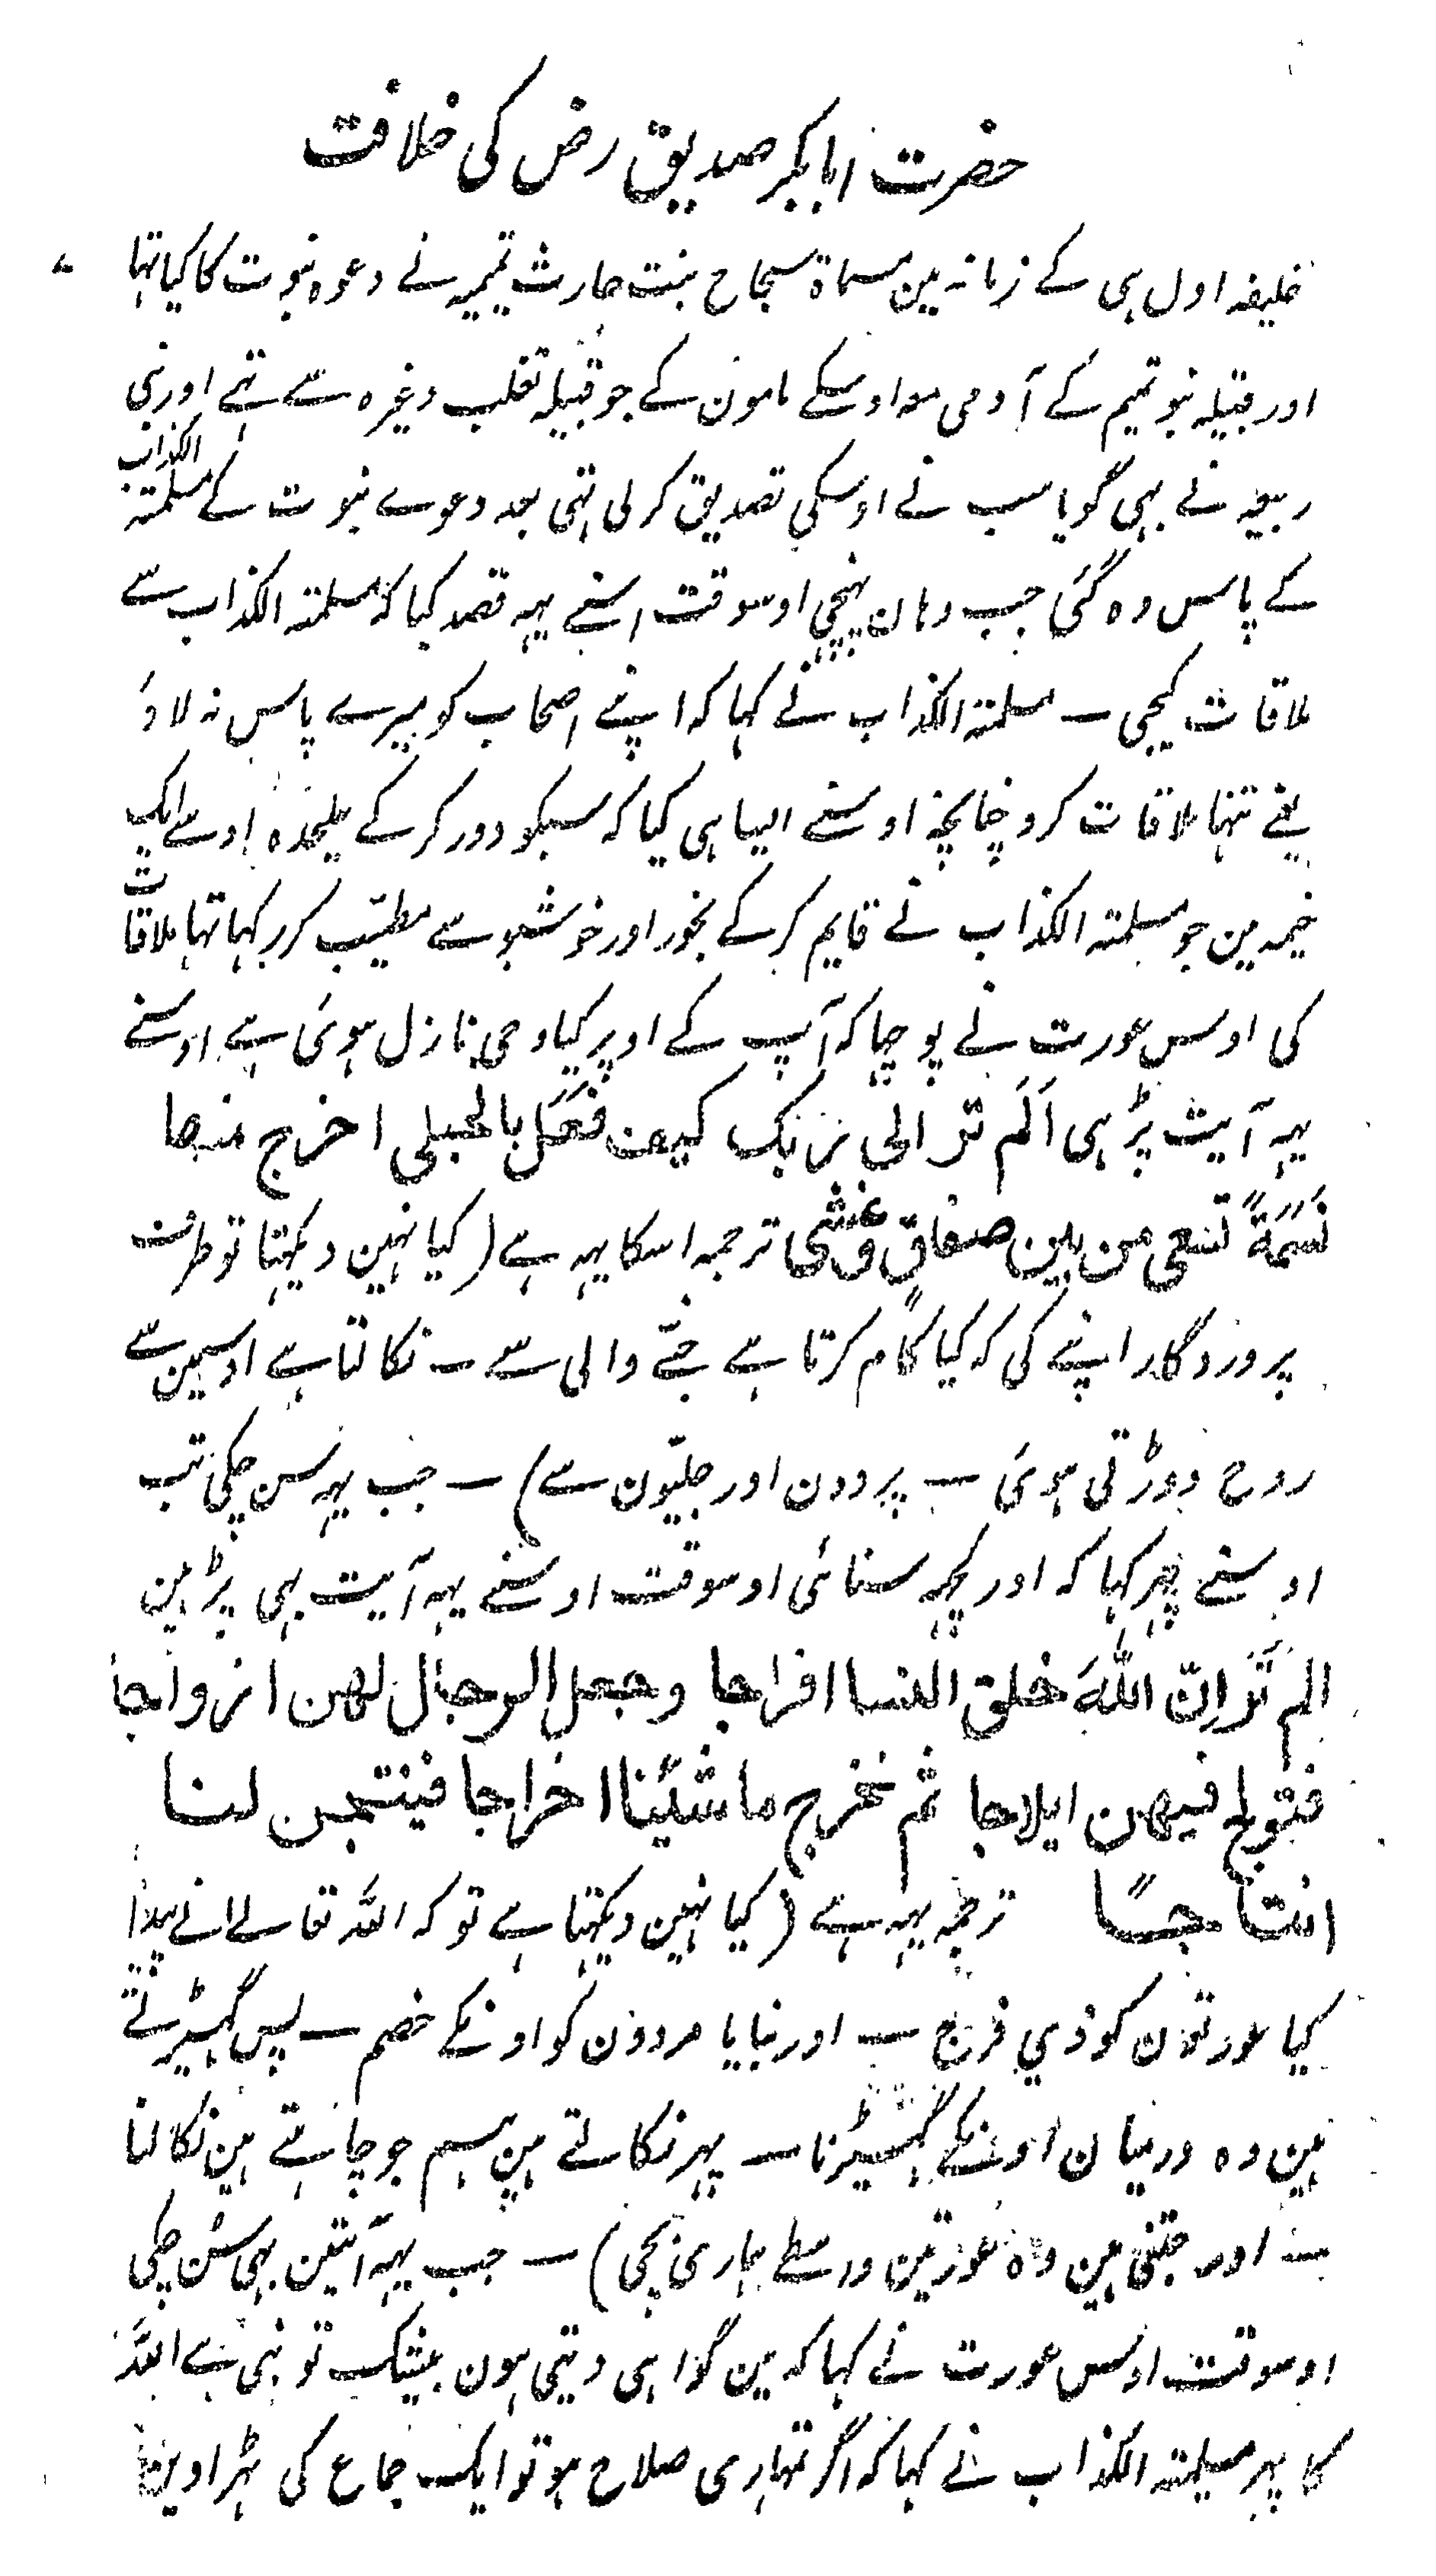 حضرت ابابکر صدیق رض کی خلافت
خلیفہ اول ہی کے زمانہ مین مسماۃ سجاح بنت حارث تمیمیہ نے دعوہ نبوت کا کیا تہا
اور قبیلہ بنو تمیم کے آدمی معہ اوسکے مامون کے جو قبیلہ تغلب وغیرہ سے تہے اور بنی
ربیعہ نے بہی گویا سب نے اوسکی تصدیق کر لی تہی بعد دعوے نبوت کے مسلمتہ الکذاب
کے پاس وہ گئی جب وہان پہنچی اوسوقت اسنے یہہ قصد کیا کہ مسلمتہ الکذاب سے
ملاقات کیجی ــ مسلمتہ الکذاب نے کہا کہ اپنے اصحاب کو میرے پاس نہ لاوٴ
یعنے تنہا ملاقات کرو چنانچہ اوسنے ایسا ہی کیا کہ سبکو دور کر کے علیحدہ اوسے ایک
خیمہ مین جو مسلمتہ الکذاب نے قایم کر کے بخور اور خوشبو سے مطیّب کر رکہا تہا ملاقات
کی اوس عورت نے پوچہا کہ آپ کے اوپر کیا وحی نازل ہوئی ہے اوسنے
یہہ آیت پڑہی اَلَم تر الی ربک کیف فَعَل بالحبلی اخرج منہا
نَسَمَةً تسعی من بین صفاق وغشی ترجمہ اسکا یہہ ہے (کیا نہین دیکہتا تو طرف
پروردگار اپنے کی کہ کیا کام کرتا ہے جنّے والی سے ــ نکالتا ہے اوسمین سے
روح دوڑتی ہوئی ــ پردون اور جہلیّون سے) ــ جب یہہ سن چکی تب
اوسنے پہر کہا کہ اور کچہہ سنائی اوسوقت اوسنے یہہ آیت بہی پڑہین
الم تَرَ اِنّ اللهَ خلق النسا افراجا وجعل الرجال لهن ازواجا
فتولج فیهن ایلاجا ثم نخرج ما شئنا اخراجا فینتجن لنا
انتاجًا ترجمہ یہہ ہے (کیا نہین دیکہتا ہے تو کہ اللہ تعالے نے پیدا
کیا عورتون کو ذی فرج ــ اور بنایا مردون کو اونکے خصم ــ پس گہسیڑتے
ہین وہ درمیان اونکے گہسیڑنا ــ پہر نکالتے ہین ہم جو چاہتے ہین نکالنا
ــ اور جنتی ہین وہ عورتین واسطے ہماری بچی) ــ جب یہہ آیتین بہی سُن چکی
اوسوقت اوس عورت نے کہا کہ مین گواہی دیتی ہون بیشک تو نبی ہے اللہ
کا پہر مسیلمتہ الکذاب نے کہا کہ اگر تمہاری صلاح ہو تو ایک جماع کی ٹہراوین